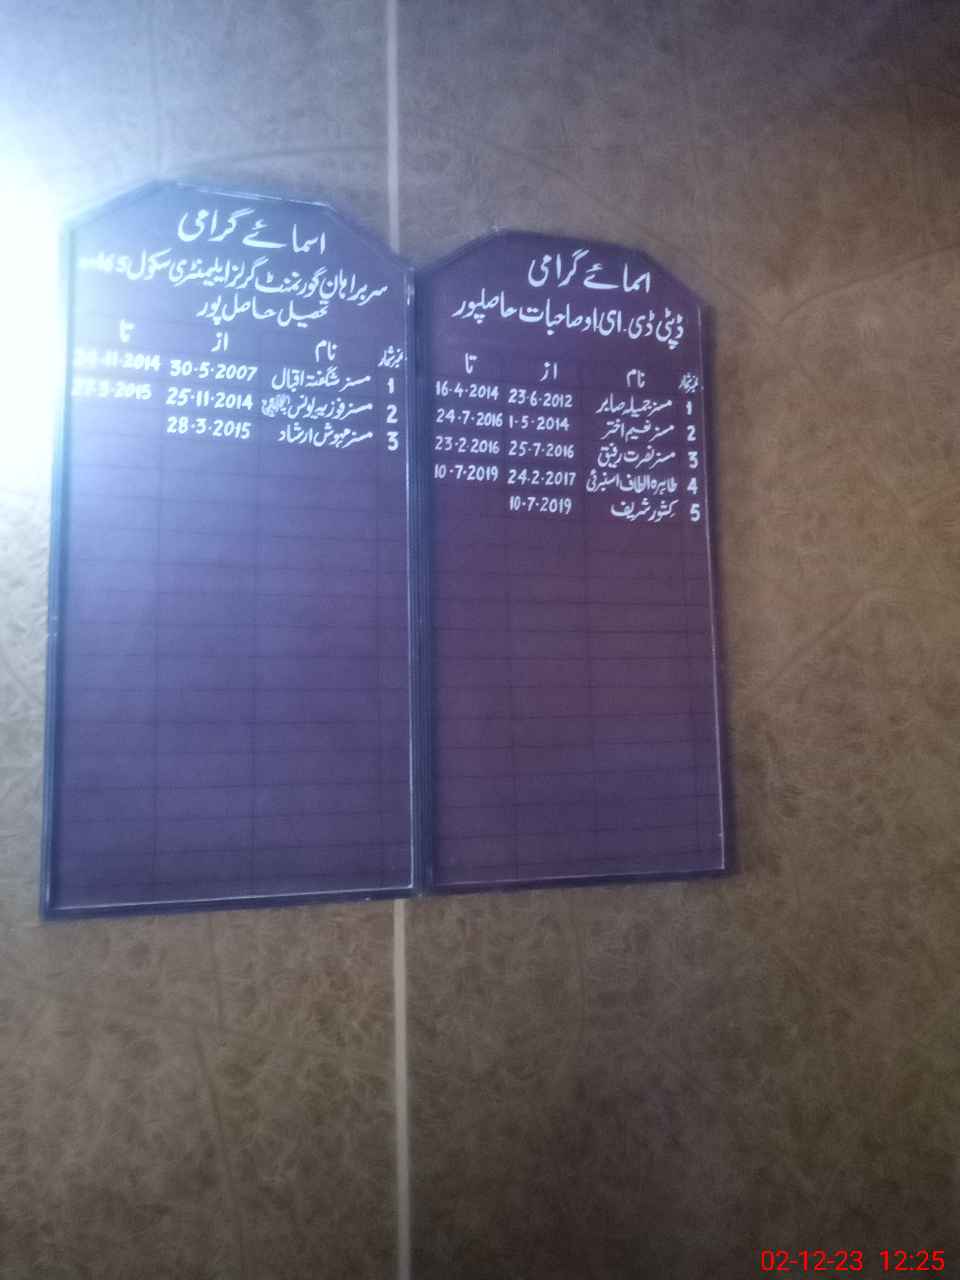 اسمائے گرامی
سربراہان گورنمنٹ گرلز ایلیمنٹری سکول 465
تحصیل حاصل پور
نمبر شمار نام از تا
1 مسز شگفتہ اقبال 30-5-2007 24-11-2014
2 مسز فوزیہ یونس 25-11-2014 27-3-2015
3 مسز مہوش ارشاد 28-3-2015
اسمائے گرامی
ڈپٹی ڈی۔ای۔او صاحبات حاصلپور
نمبر شمار نام از تا
1 مسز جمیلہ صابر 23-6-2012 16-4-2014
2 مسز نسیم اختر 1-5-2014 24-7-2016
3 مسز نصرت رفیق 25-7-2016 23-2-2016
4 طاہرہ الطاف 24-2-2017 10-7-2019
5 کشور شریف 10-7-2019
02-12-23 12:25